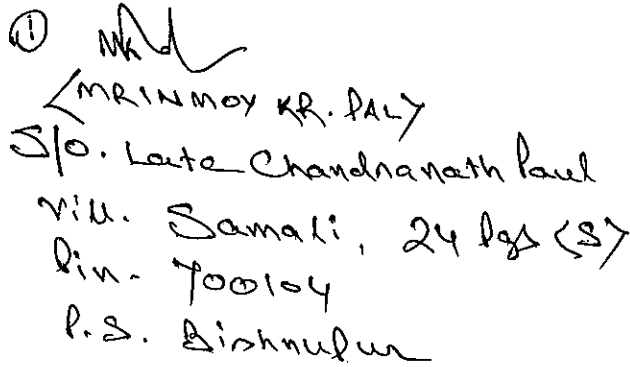 ①
<MRINMOY KR. PAL>
S/o. Late Chandranath Paul
Vill. Samali, 24 Pgs <S>
Pin- 700104
P.S. Bishnupur